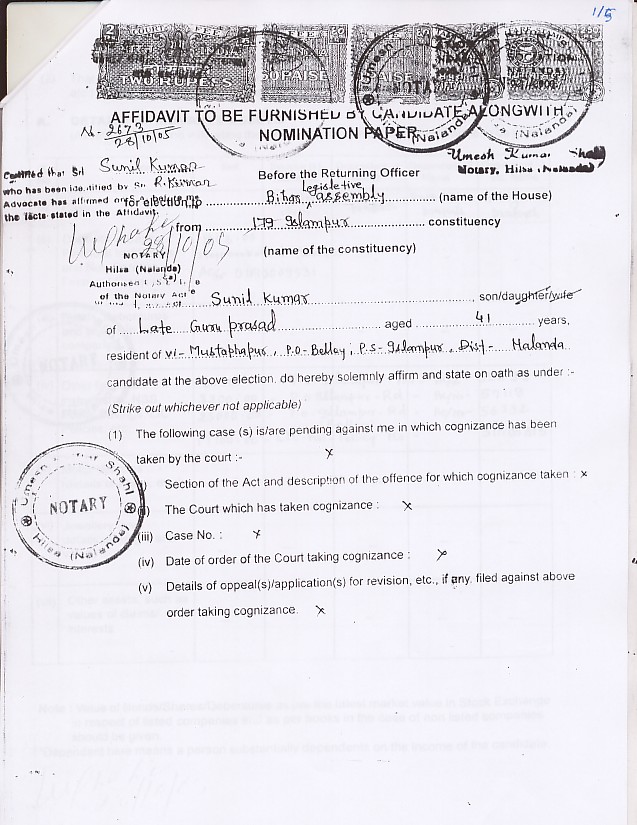 1/5
TWO RUPEES
PAISE
PAISE
AFFIDAVIT TO BE FURNISHED BY CANDIDATE ALONGWITH
NOMINATION PAPER
2673
28/10/05
Umesh Kumar Shahi
Notary, Hilsa (Nalanda)
Certified that Sri Sunil Kumar
who has been identified by Sri R. Kumar
Advocate has affirmed
the facts stated in the Affidavit.
28/10/05
NOTARY
Hilsa (Nalanda)
Authorised
of the Notary Act
Before the Returning Officer
for election to Bihar Legislative assembly (name of the House)
from 179 Islampur constituency
(name of the constituency)
I Sunil Kumar son/daughter/wife
of Late Guru prasad aged 41 years,
resident of vi- Mustaphapur, P.O- Belley, P.S- Islampur, Dist- Nalanda
candidate at the above election, do hereby solemnly affirm and state on oath as under :-
(Strike out whichever not applicable)
(1) The following case (s) is/are pending against me in which cognizance has been
taken by the court :- x
Section of the Act and description of the offence for which cognizance taken : x
The Court which has taken cognizance : x
(iii) Case No. : x
(iv) Date of order of the Court taking cognizance : x
(v) Details of appeal(s)/application(s) for revision, etc., if any, filed against above
order taking cognizance. x
Umesh Kumar Shahi
NOTARY
Hilsa (Nalanda)